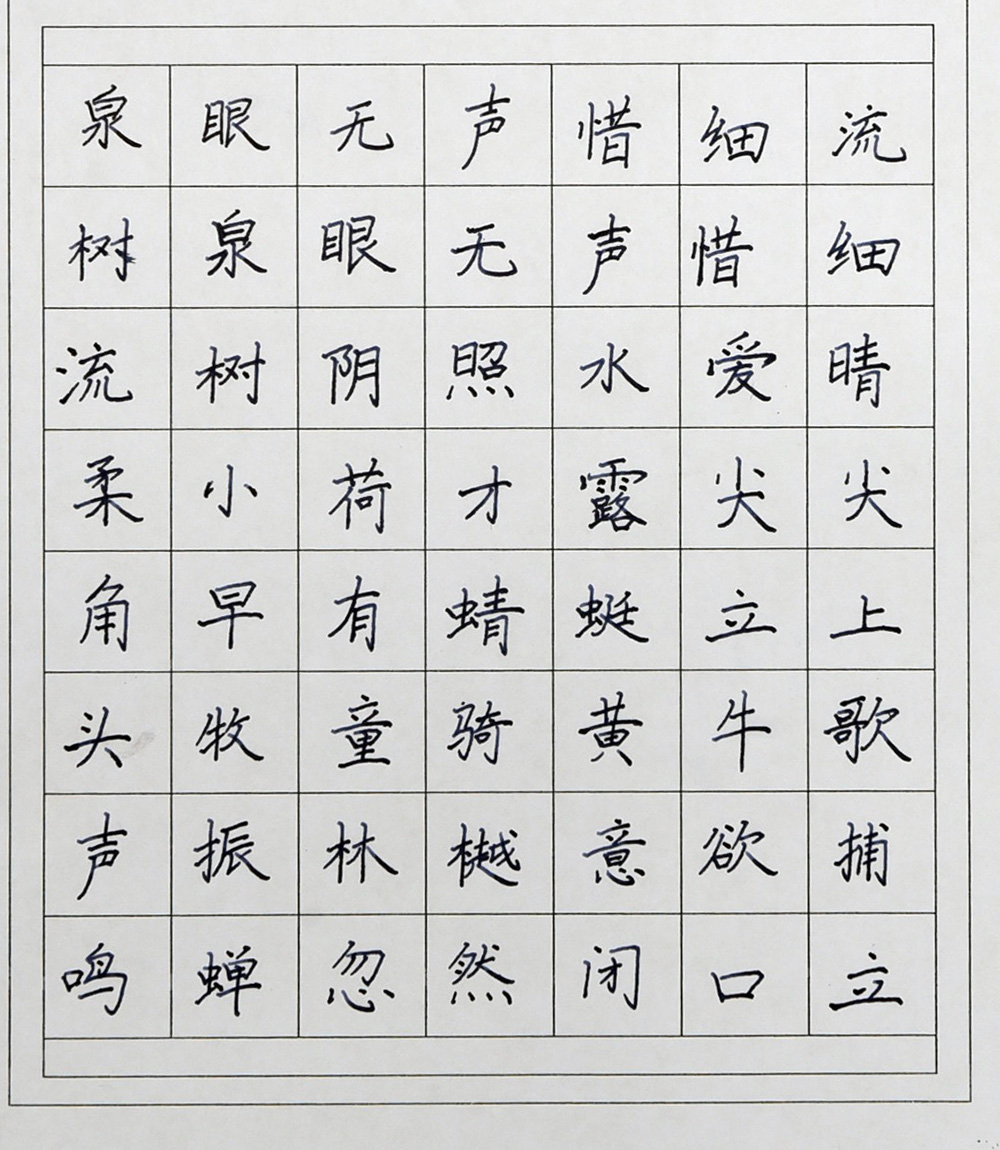 泉眼无声惜细流
树泉眼无声惜细
流树阴照水爱晴
柔小荷才露尖尖
角早有蜻蜓立上
头牧童骑黄牛歌
声振林樾意欲捕
鸣蝉忽然闭口立